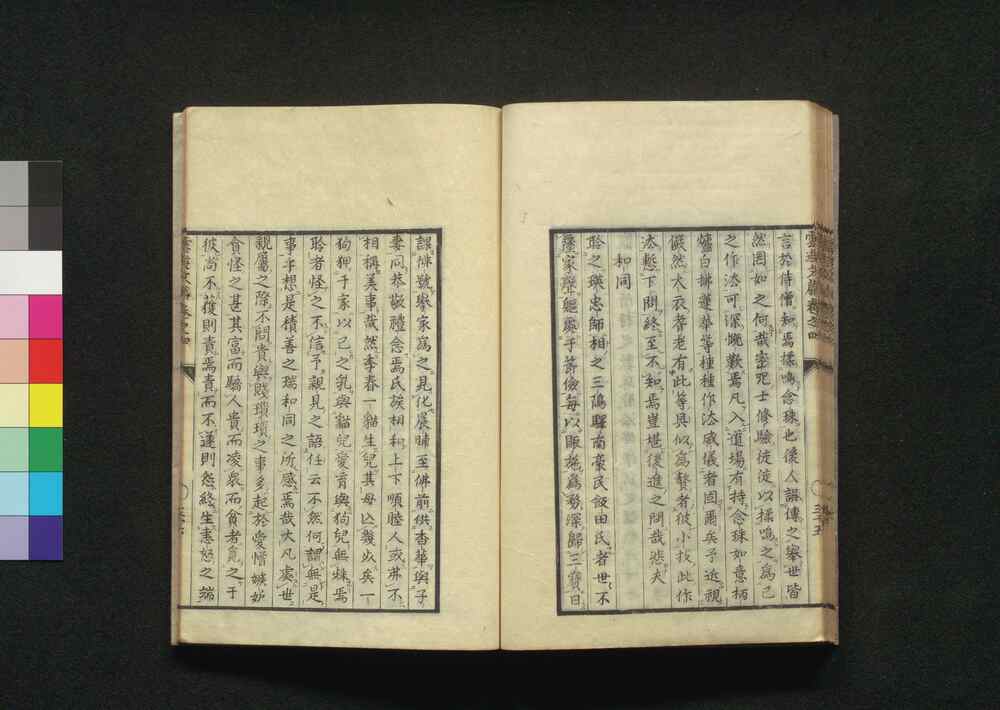 言於侍僧知焉揉鳴念珠也後人誤傳之舉世皆
然固如之何哉密咒士修驗徒徒以揉鳴之為己
之作法可深慨歎焉凡入道場有持念珠如意柄
爐白拂蓮華等種種作法威儀者固爾矣予近視
儼然大衣耆老有此等具似為贅者彼小技此作
法慙下問終至不知焉豈堪後進之問哉悲夫
和同
聆之瑛忠師相之三隅驛南豪民飯田氏者世不
廢家聲 於節儉每以賑施為務深歸三寶日
課佛號舉家為之晁化晨晡至佛前供香華與子
妻同恭敬禮念焉氏族相和上下順睦人或靡不
相稱美事哉然季春一貓生兒其母亡幾凶矣一
狗狎于家以己之乳與貓兒愛育與狗兒無殊焉
聆者怪之不信予親見之語任云不然何謂無是
事乎想是積善之瑞和同之所感焉哉大凡處世
親屬之際不問貴與賤瑣瑣之事多起於愛憎嫉妒
會怪之甚其富而驕人貴而凌眾而貧者貪之于
彼尚不獲則責焉責而不遂則怨終生恚怒之端